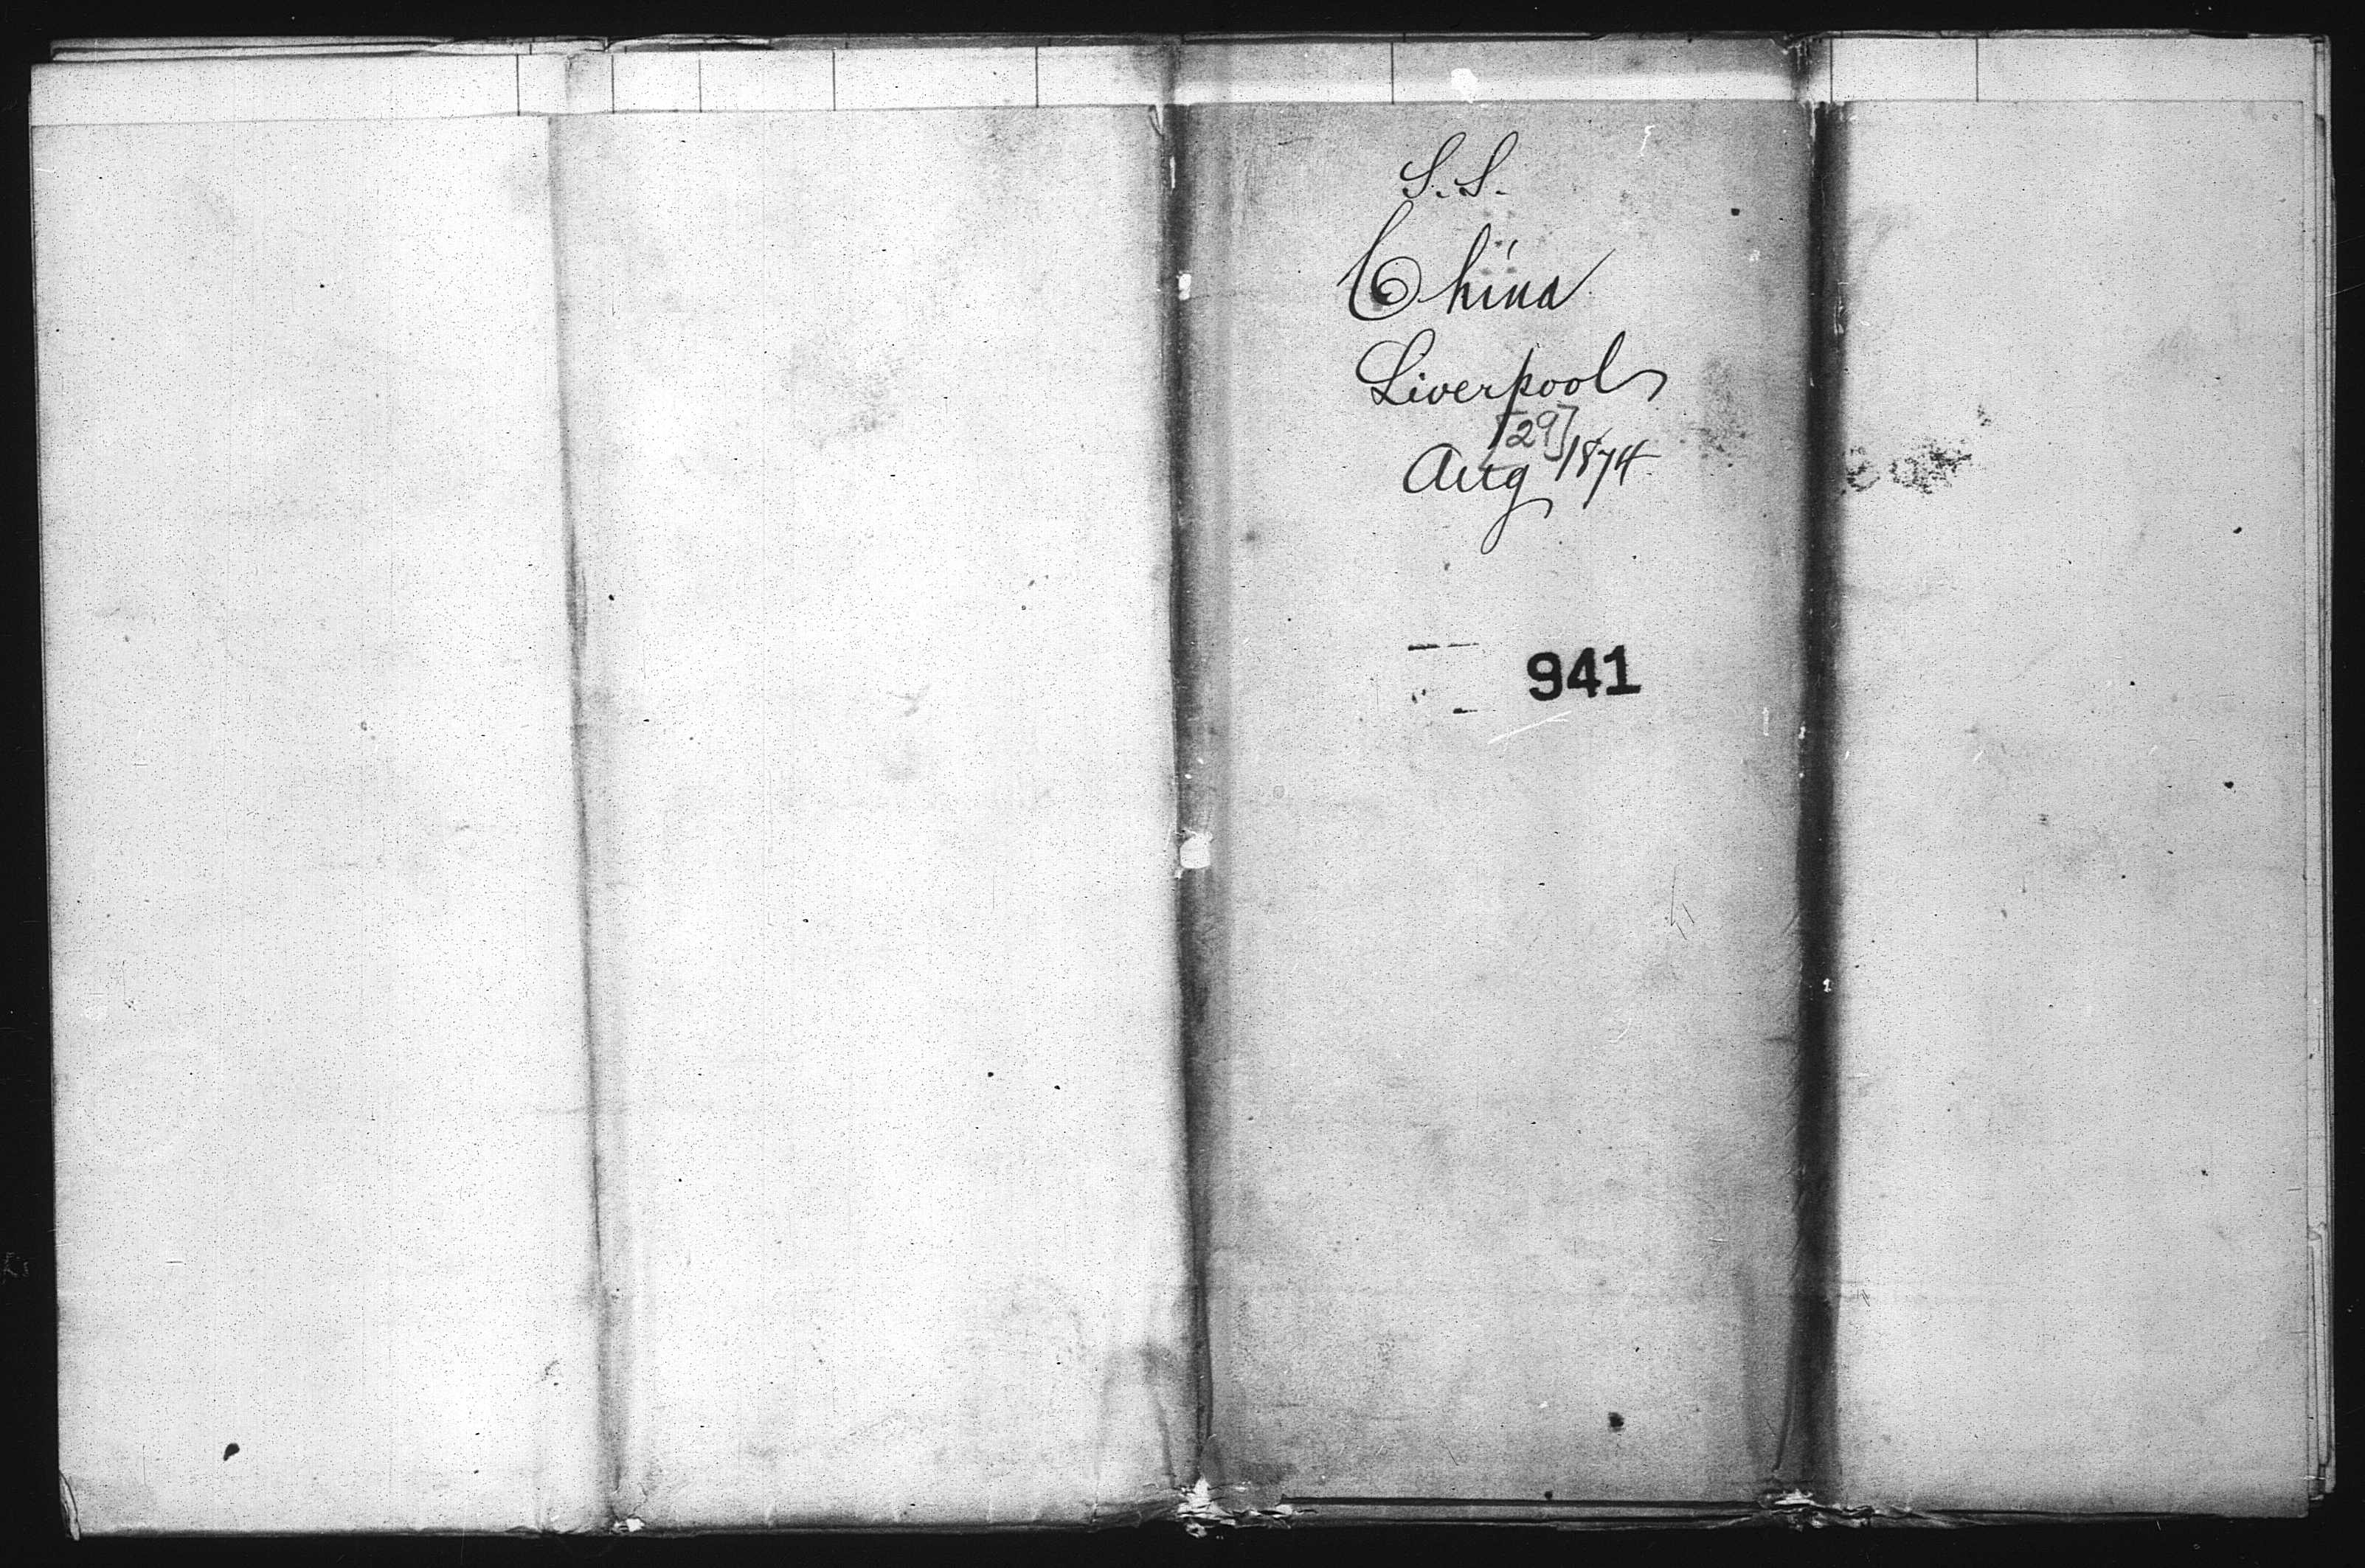 S.S.
China
Liverpool
Aug [29] 1874
941